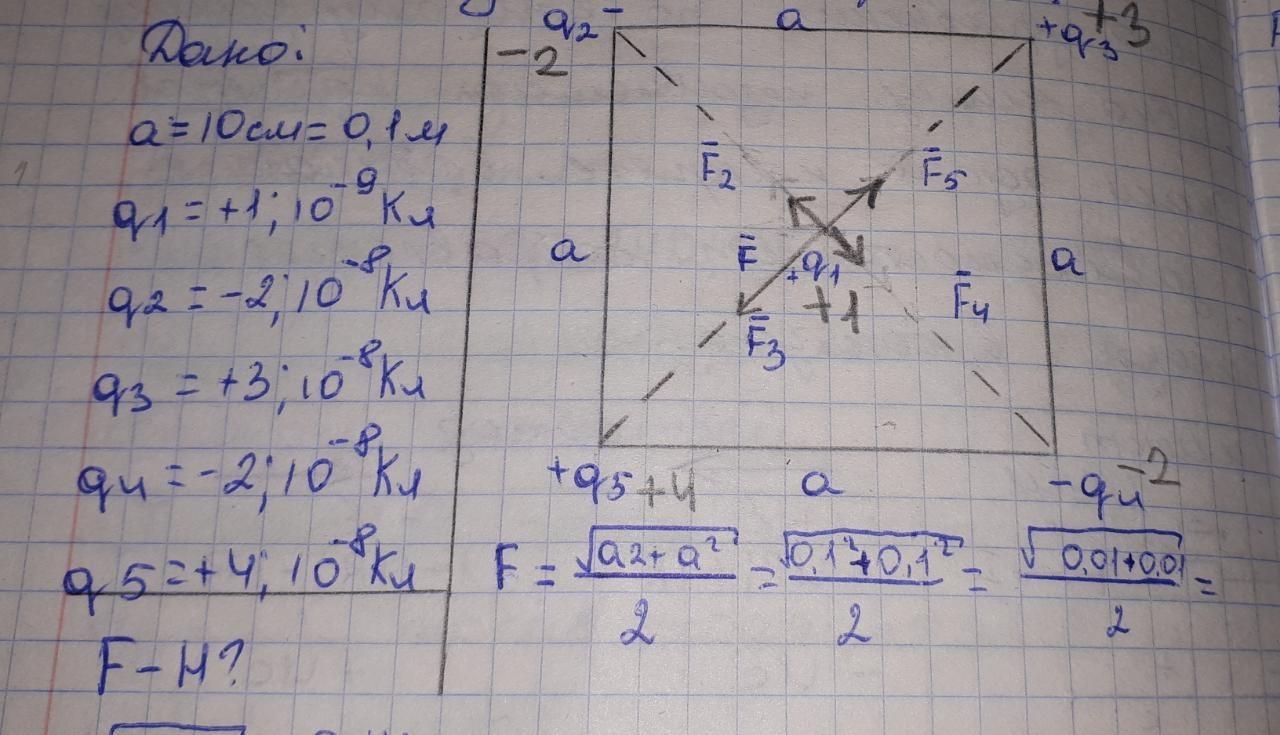 Дано:
a = 10 см = 0,1 м
q1 = +1; 10⁻⁹ Кл
q2 = -2; 10⁻⁸ Кл
q3 = +3; 10⁻⁸ Кл
q4 = -2; 10⁻⁸ Кл
q5 = +4; 10⁻⁸ Кл
F - Н?
q2 -
a
+q3 +3
-2
F̄2
F̄5
a
F̄
+q1
a
+1
F̄4
F̄3
+q5 +4
a
-q4 -2
F = √(a2 + a²) / 2 = √(0,1² + 0,1²) / 2 = √(0,01 + 0,01) / 2 =